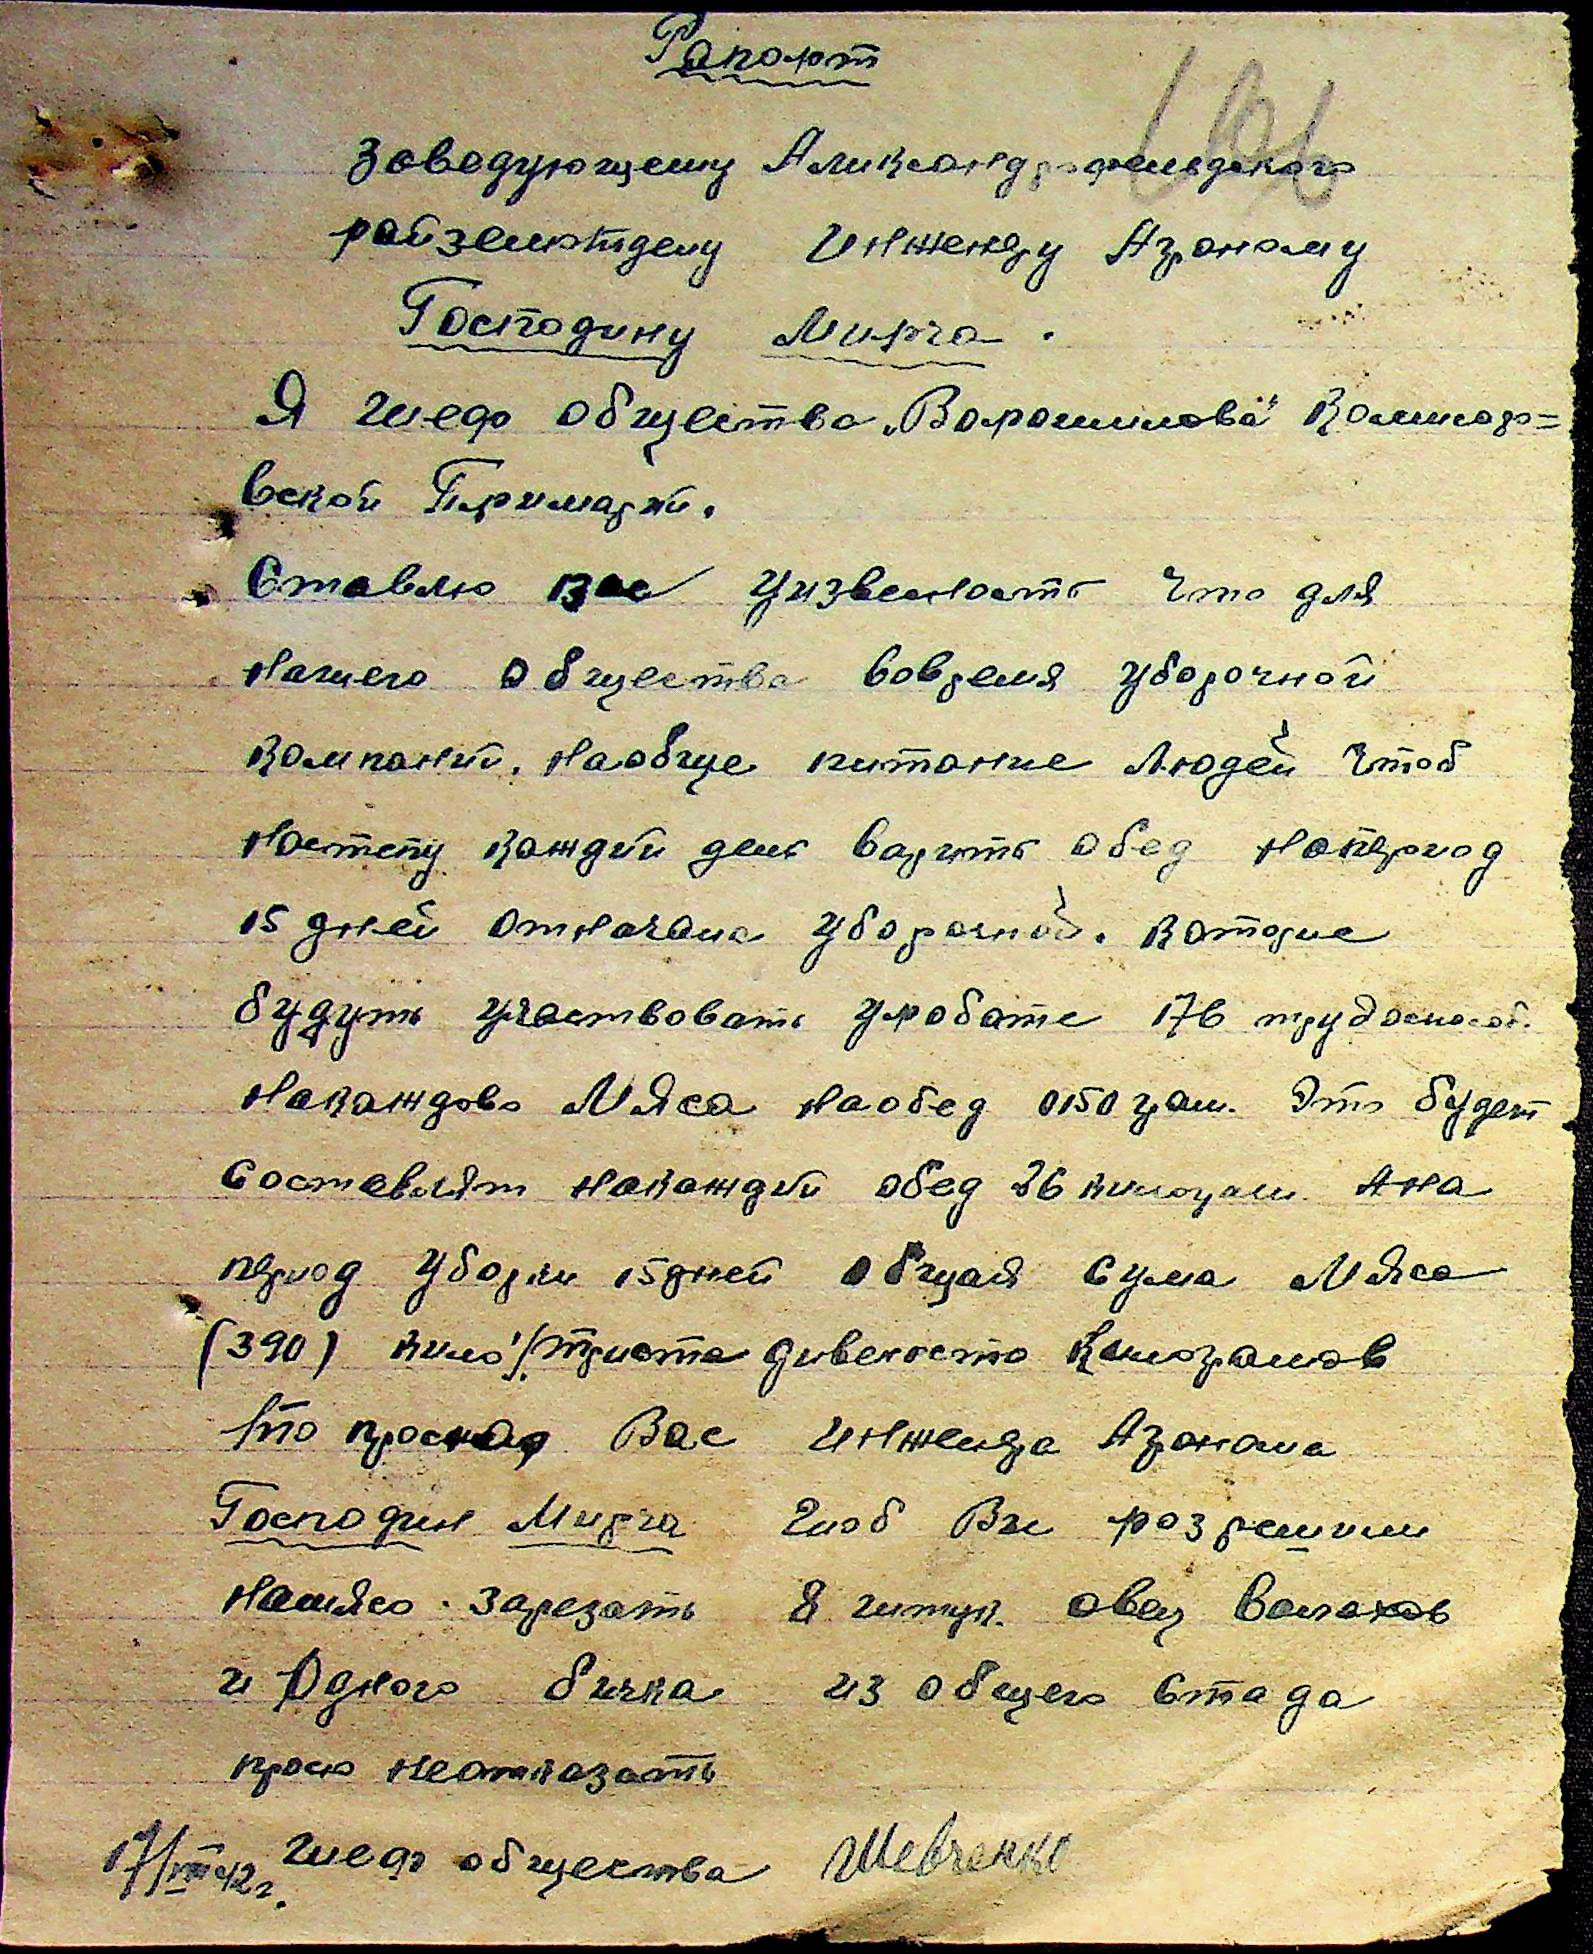 Рапорт
Заведующему Александрфельдского
райземотделу Инженеру Агроному
Господину Мирча.
Я шеф общества „Ворошилова" Комисар=
вской Примарии.
Ставлю вас Уизвесность Что для
Нашего Общества вовремя Уборочной
Компании. Наобще питание Людей Чтоб
Настепу Каждий день варить обед Напериод
15 дней отначала Уборочной. Которие
будуть Участвовать Уработе 176 трудоспособ.
Накаждово Мяса наобед 0150 грам. Это будет
Составлят Накаждий обед 26 килограм. Ана
период Уборки 15 дней Общая Сума Мяса
(390) кило /Триста дивеносто Килограмов
Что просю Вас Инженера Агронома
Господин Мирча Чтоб Ви розрешили
Намясо. Зарезать 8 штук. овец Валахов
и Одного бичка из общего Стада
просю Неотказать
17/VII 42 г. Шеф общества Шевченко